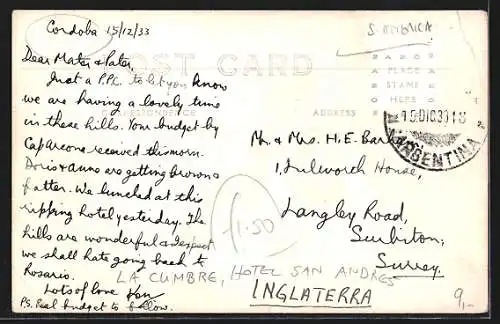 Cordoba 15/12/33
S. AMERICA
POST CARD
CORRESPONDENCE
ADDRESS
PLACE
STAMP
HERE
15 DIC 33 18
ARGENTINA
Dear Mater & Pater,
Just a P.P.C. to let you know
we are having a lovely time
in these hills. Your budget by
Cap Arcona received this morn.
Doris & Anne are getting brown &
fatter. We lunched at this
ripping hotel yesterday. The
hills are wonderful & I expect
we shall hate going back to
Rosario.
Lots of love
P.S. Real budget to follow.
Mr. & Mrs. H. E.
1, House,
Langley Road,
Surbiton,
Surrey.
INGLATERRA
1.50
LA CUMBRE, HOTEL SAN ANDRES
9,-